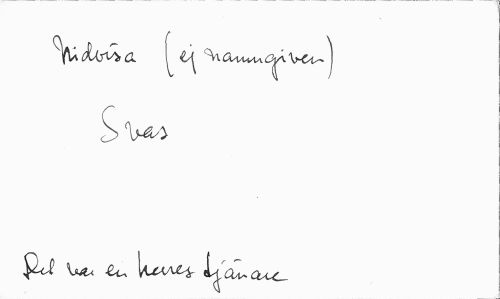 Nidvisa (ej namngiven)
Svas
Det var en herres tjänare